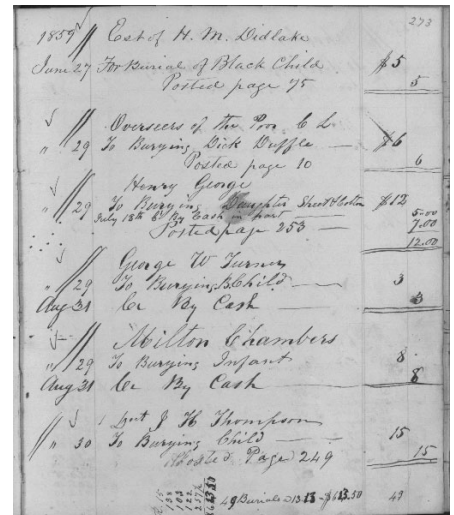 273
1859 Est of H. M. Didlake
June 27 For Burial of Black Child $5
Posted page 75 5
Overseers of the Poor C L
" 29 To Burying Dick Duffle $6
Posted page 10 6
Henry George
" 29 To Burying Daughter Sheet & Cotton $12
July 18th Cr By Cash in part 5.00
Posted page 253 7.00
12.00
George W Turner
" 29 To Burying B Child 3
Aug 31 Cr By Cash 3
Milton Chambers
" 29 To Burying Infant 8
Aug 31 Cr By Cash 8
J H Thompson
" 30 To Burying Child 15
Posted Page 249 15
49 Burials 49